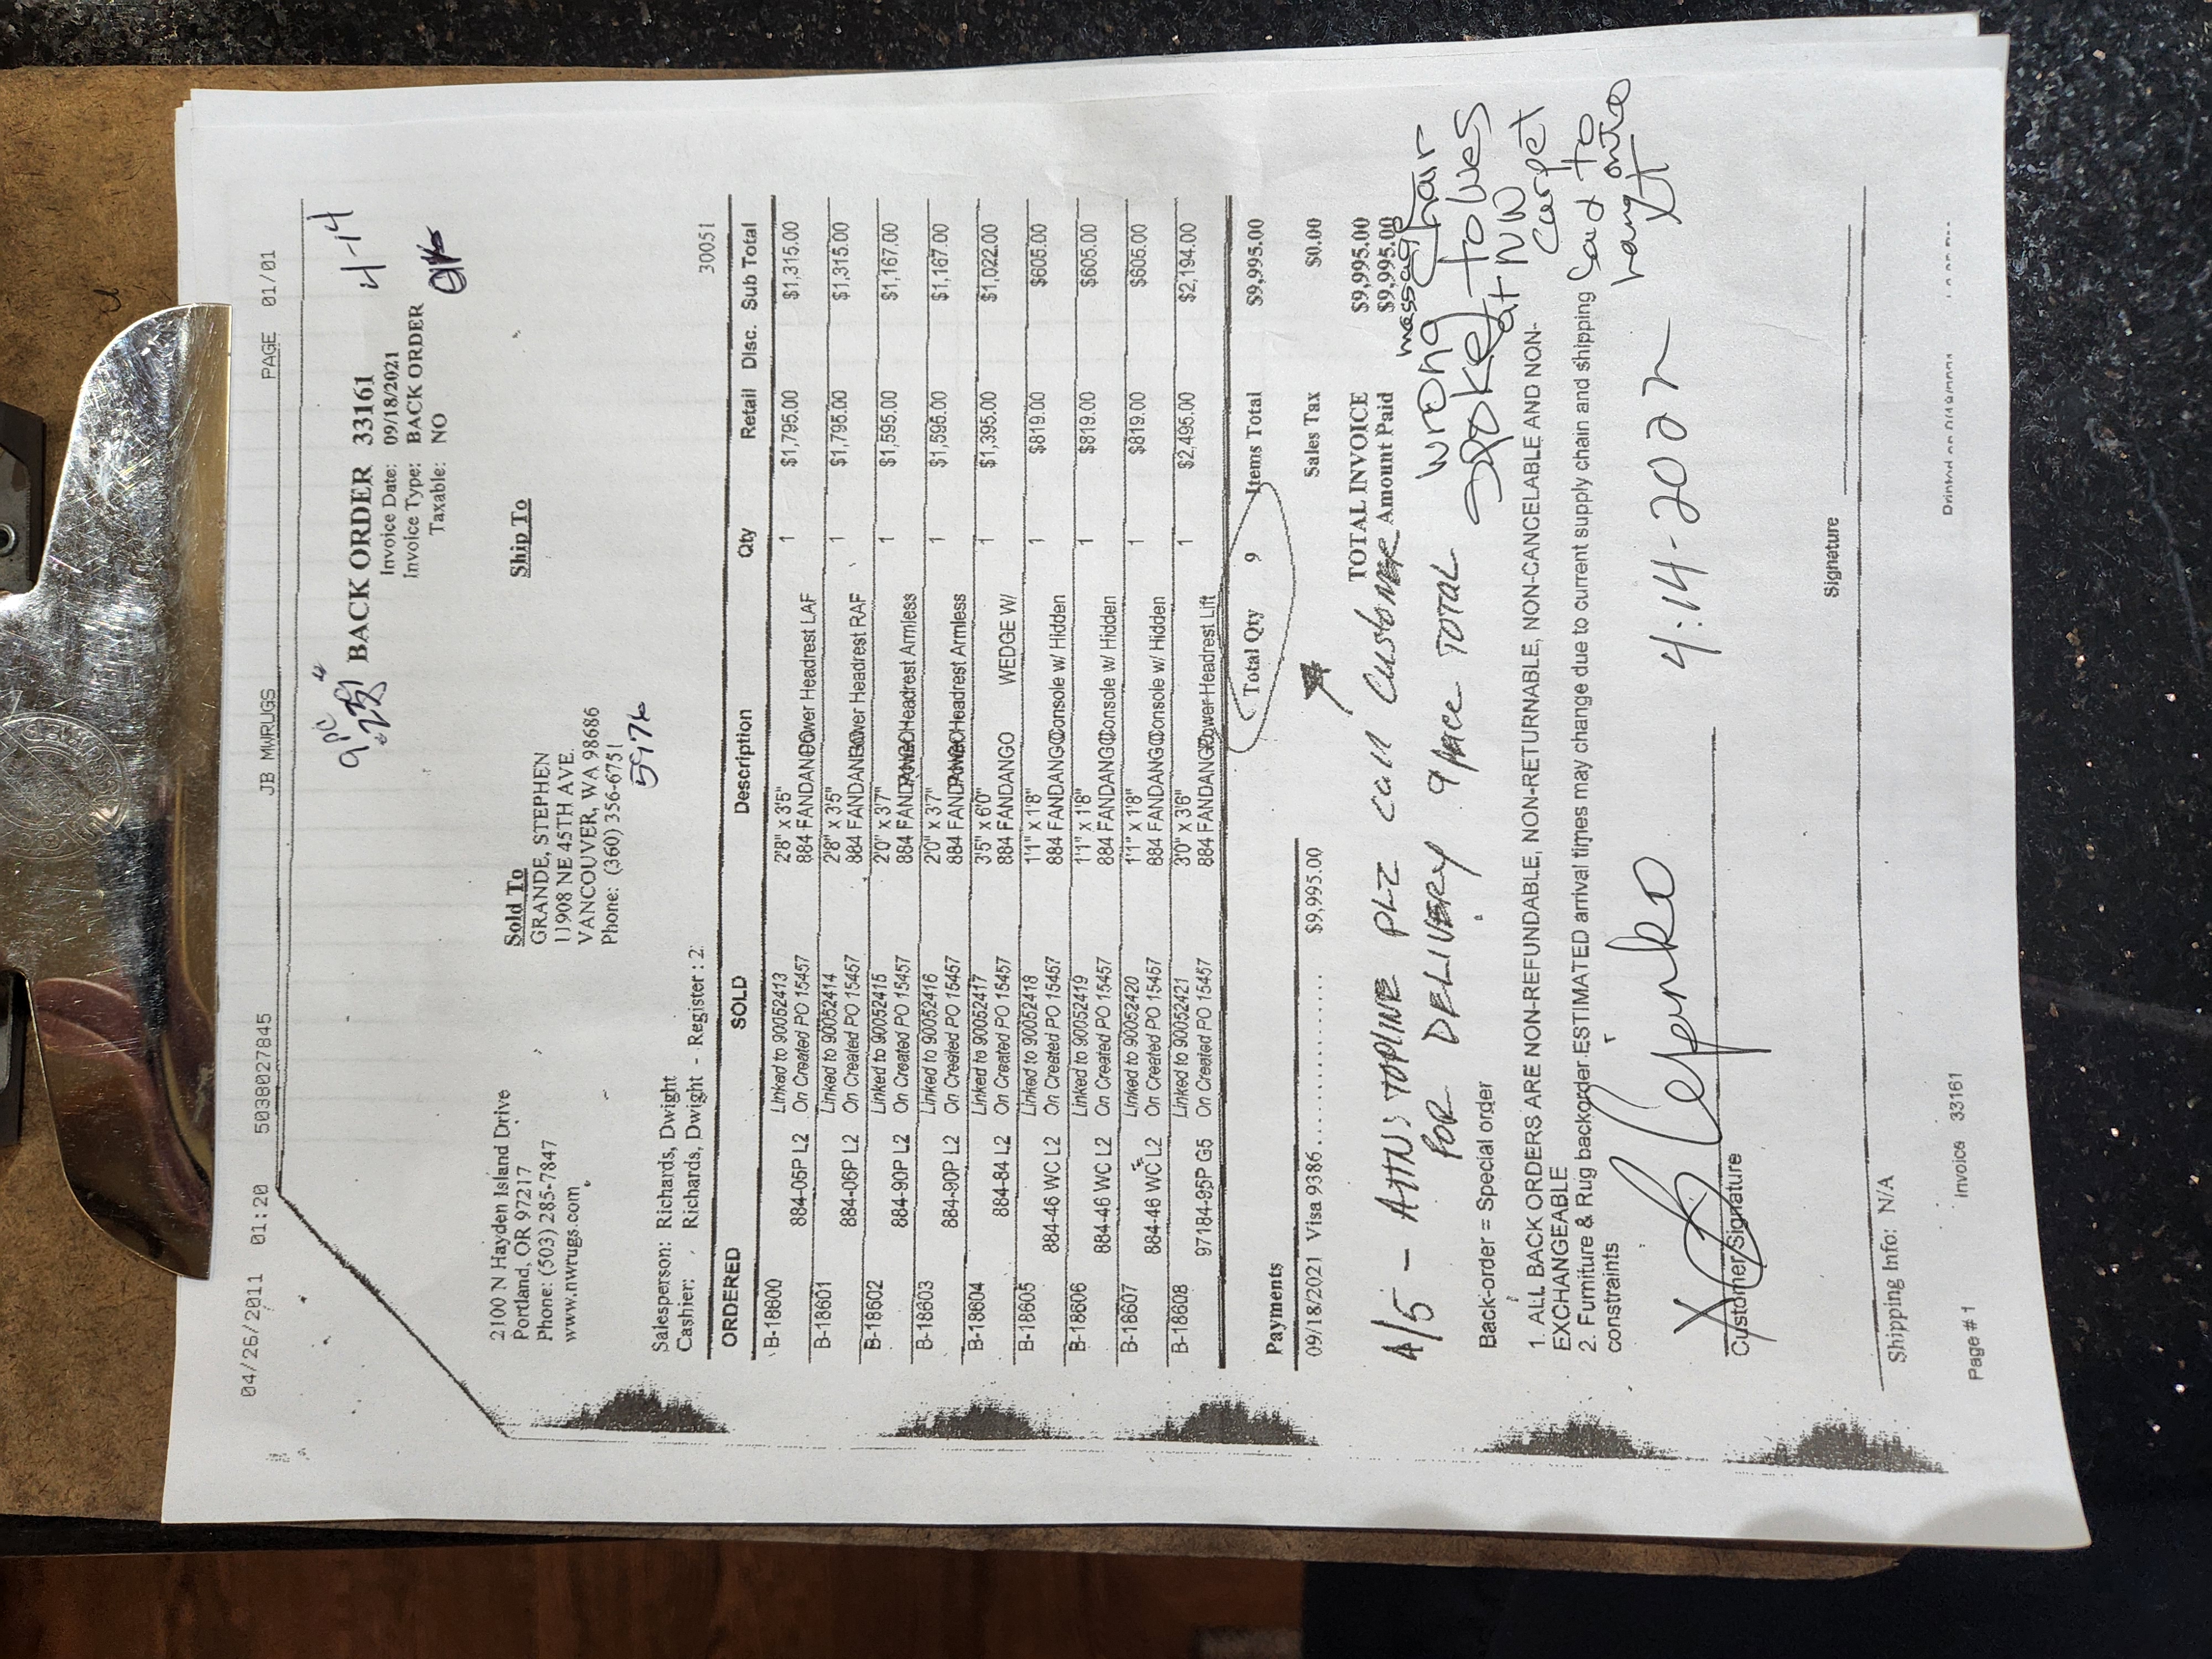 04/26/2011 01:20 5038027845 JB MWRUGS PAGE 01/01
9 pc
4-14
BACK ORDER 33161
Invoice Date: 09/18/2021
Invoice Type: BACK ORDER
Taxable: NO
2100 N Hayden Island Drive
Portland, OR 97217
Phone: (503) 285-7847
www.nwrugs.com
Sold To
GRANDE, STEPHEN
11908 NE 45TH AVE.
VANCOUVER, WA 98686
Phone: (360) 356-6751
Ship To
Salesperson: Richards, Dwight
Cashier: Richards, Dwight - Register: 2
30051
ORDERED SOLD Description Qty Retail Disc. Sub Total
B-18600 Linked to 90052413 2'8" x 3'5" 1 $1,795.00 $1,315.00
884-05P L2 On Created PO 15457 884 FANDANGO Power Headrest LAF
B-18601 Linked to 90052414 2'8" x 3'5" 1 $1,795.00 $1,315.00
884-06P L2 On Created PO 15457 884 FANDANGO Power Headrest RAF
B-18602 Linked to 90052415 2'0" x 3'7" 1 $1,595.00 $1,167.00
884-90P L2 On Created PO 15457 884 FANDANGO Power Headrest Armless
B-18603 Linked to 90052416 2'0" x 3'7" 1 $1,595.00 $1,167.00
884-90P L2 On Created PO 15457 884 FANDANGO Power Headrest Armless
B-18604 Linked to 90052417 3'5" x 6'0" 1 $1,395.00 $1,022.00
884-84 L2 On Created PO 15457 884 FANDANGO WEDGE W/
B-18605 Linked to 90052418 1'1" x 1'8" 1 $819.00 $605.00
884-46 WC L2 On Created PO 15457 884 FANDANGO Console w/ Hidden
B-18606 Linked to 90052419 1'1" x 1'8" 1 $819.00 $605.00
884-46 WC L2 On Created PO 15457 884 FANDANGO Console w/ Hidden
B-18607 Linked to 90052420 1'1" x 1'8" 1 $819.00 $605.00
884-46 WC L2 On Created PO 15457 884 FANDANGO Console w/ Hidden
B-18608 Linked to 90052421 3'0" x 3'6" 1 $2,495.00 $2,194.00
97184-95P G5 On Created PO 15457 884 FANDANGO Power Headrest Lift
Total Qty 9 Items Total $9,995.00
Payments
Sales Tax $0.00
09/18/2021 Visa 9386 $9,995.00
TOTAL INVOICE $9,995.00
Amount Paid $9,995.00
4/5 - ATTN: TOPLINE PLZ call CUSTOMER
FOR DELIVERY 9 PIECE TOTAL
wrong massage chair
spoke to Wes
at NW
Carpet
Said to
Back-order = Special order
1. ALL BACK ORDERS ARE NON-REFUNDABLE, NON-RETURNABLE, NON-CANCELABLE AND NON-
EXCHANGEABLE
2. Furniture & Rug backorder ESTIMATED arrival times may change due to current supply chain and shipping
constraints
X
4-14-2022
Customer Signature
Signature
Shipping Info: N/A
Page # 1 Invoice 33161